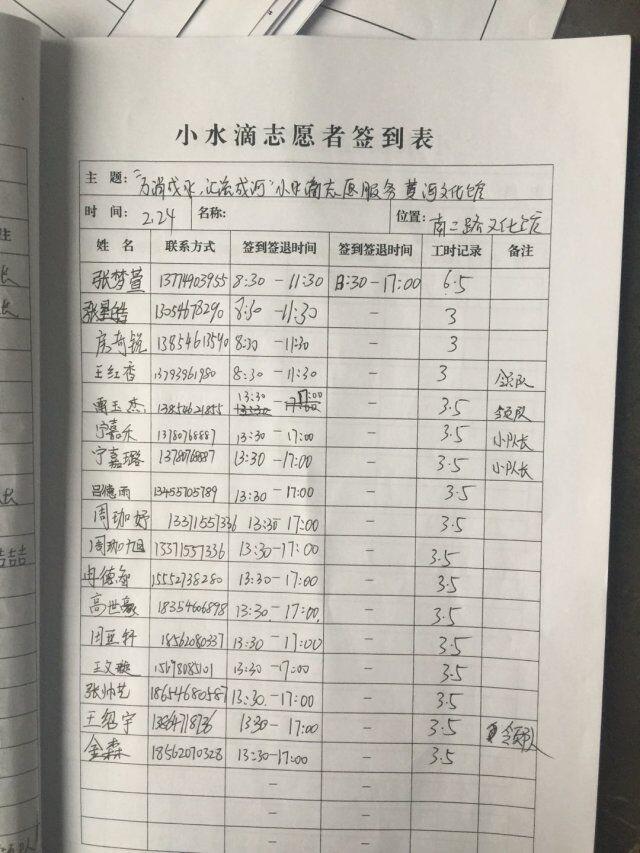 小水滴志愿者签到表
主 题：“万滴成水,汇流成河”小水滴志愿服务黄河文化馆
时 间： 2.24 名称： 位置： 南二路文化馆
姓 名 联系方式 签到签退时间 签到签退时间 工时记录 备注
张梦萱 13774903955 8:30 - 11:30 13:30 - 17:00 6.5
张星皓 13054678290 8:30 - 11:30 - 3
房奇锐 13854613590 8:30 - 11:30 - 3
王红香 13793961980 8:30 - 11:30 - 3 领队
曹玉杰 13854621855 13:30 - 17:00 - 3.5 领队
宁嘉乐 13780768887 13:30 - 17:00 - 3.5 小队长
宁嘉璐 13780768887 13:30 - 17:00 - 3.5 小队长
吕德雨 13455705789 13:30 - 17:00 - 3.5
周珈妤 13371557336 13:30 - 17:00 - 3.5
周珈旭 13371557336 13:30 - 17:00 - 3.5
冉德智 15552738280 13:30 - 17:00 - 3.5
高世豪 18354606898 13:30 - 17:00 - 3.5
周亚轩 18562080337 13:30 - 17:00 - 3.5
王文璇 13:30 - 17:00 - 3.5
张帅艺 18654680587 13:30 - 17:00 - 3.5
王绍宇 13:30 - 17:00 - 3.5 领队
金森 18562070328 13:30 - 17:00 - 3.5
-
-
-